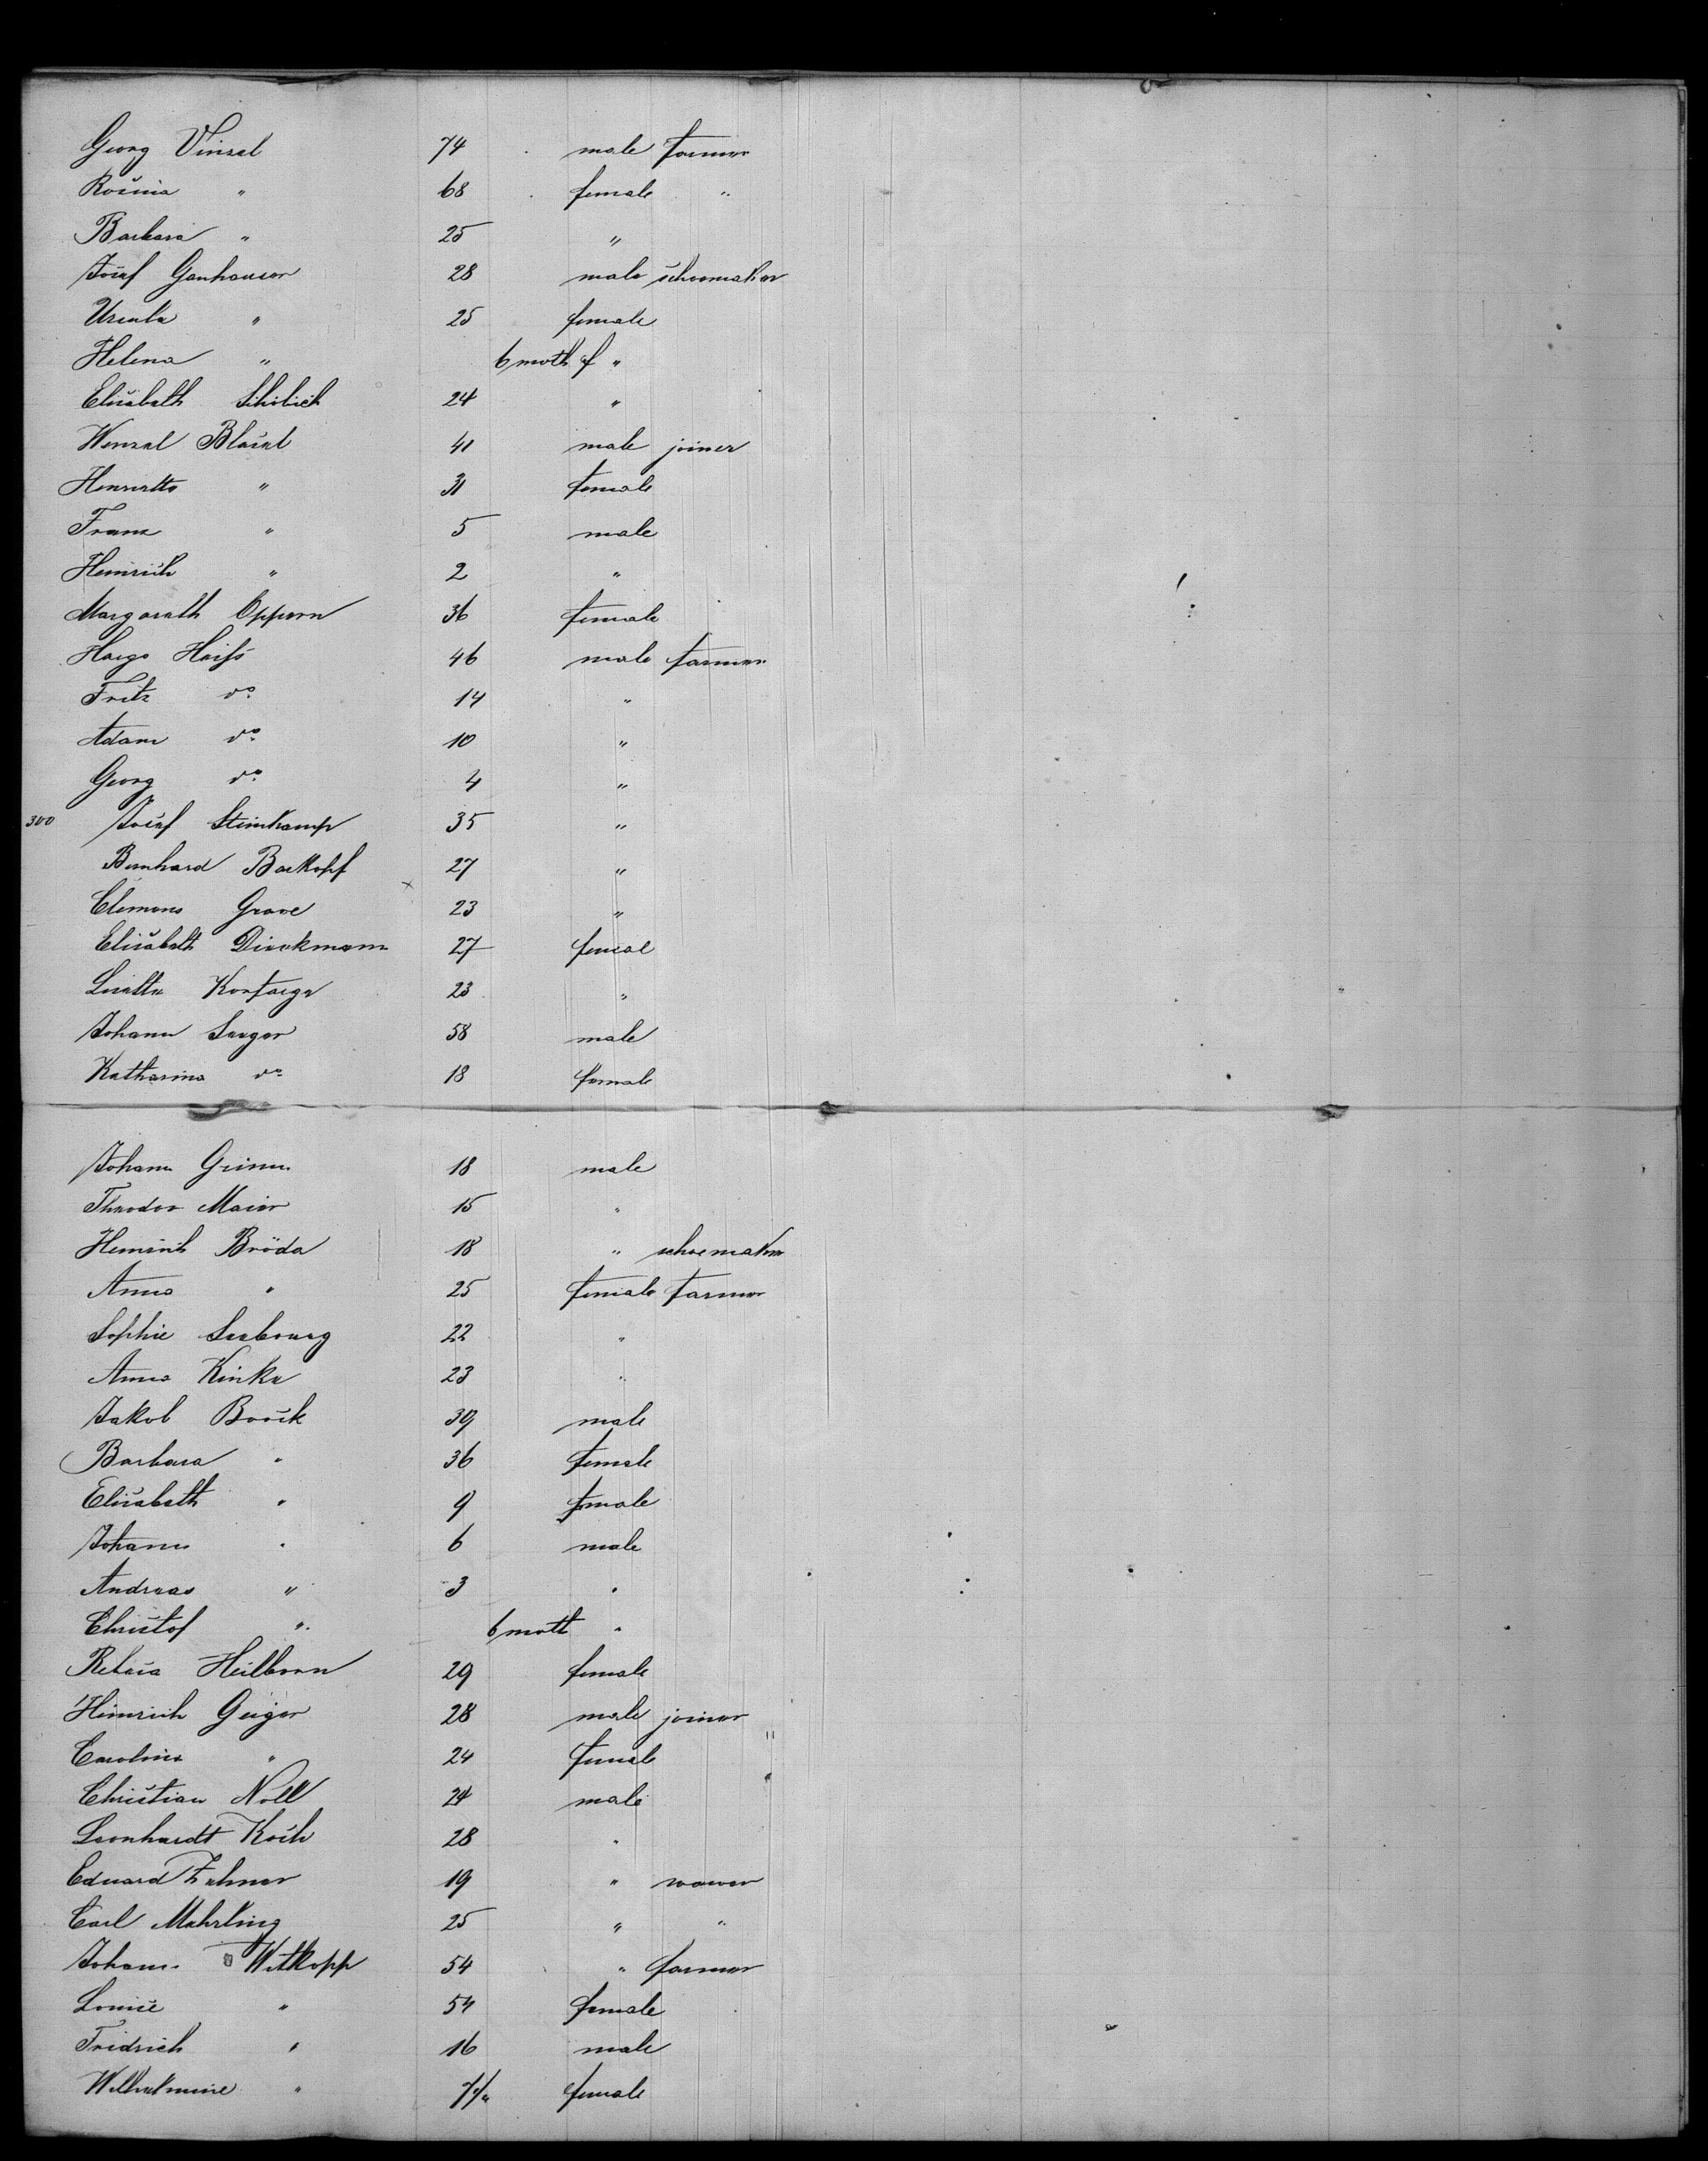 Georg Vinzal 74 male farmer
Rosina " 68 female "
Barbara " 25 "
Josef Ganhauser 28 male schoemaker
Ursula " 25 female
Helena " 6 moth f "
Elisabeth 24 "
Wenzal Blasal 41 male joiner
Henrietta " 31 female
Franz " 5 male
Heinrich " 2 "
Margareth Oppern 36 female
Heiss 46 male farmer
Fritz do 14 "
Adam do 10 "
Georg do 4 "
300 Josef Steinkamp 35 "
Bernhard Backopf 27 "
Clemens Grave 23 "
Elisabeth Dieckmann 27 femal
Lisette 23 "
Johann Saeger 58 male
Katharina do 18 female
Johann Grimm 18 male
Theodor Maier 15 "
Heinrich Bröda 18 " schoemaker
Anna " 25 female farmer
Sophie Seebourg 22 "
Anna Kinke 23 "
Jakob Boosk 39 male
Barbara " 36 female
Elisabeth " 9 female
Johann " 6 male
Andreas " 3 "
Christof " 6 moth "
Heilborn 29 female
Heinrich Geiger 28 male joiner
Carolina " 24 female
Christian Noll 24 male
Leonhardt Koch 28 "
Eduard Fehner 19 " wewer
Carl Mehrling 25 " "
Johann Witkopp 54 " farmer
Louise " 54 female
Fridrich " 16 male
Wilhelmine " female